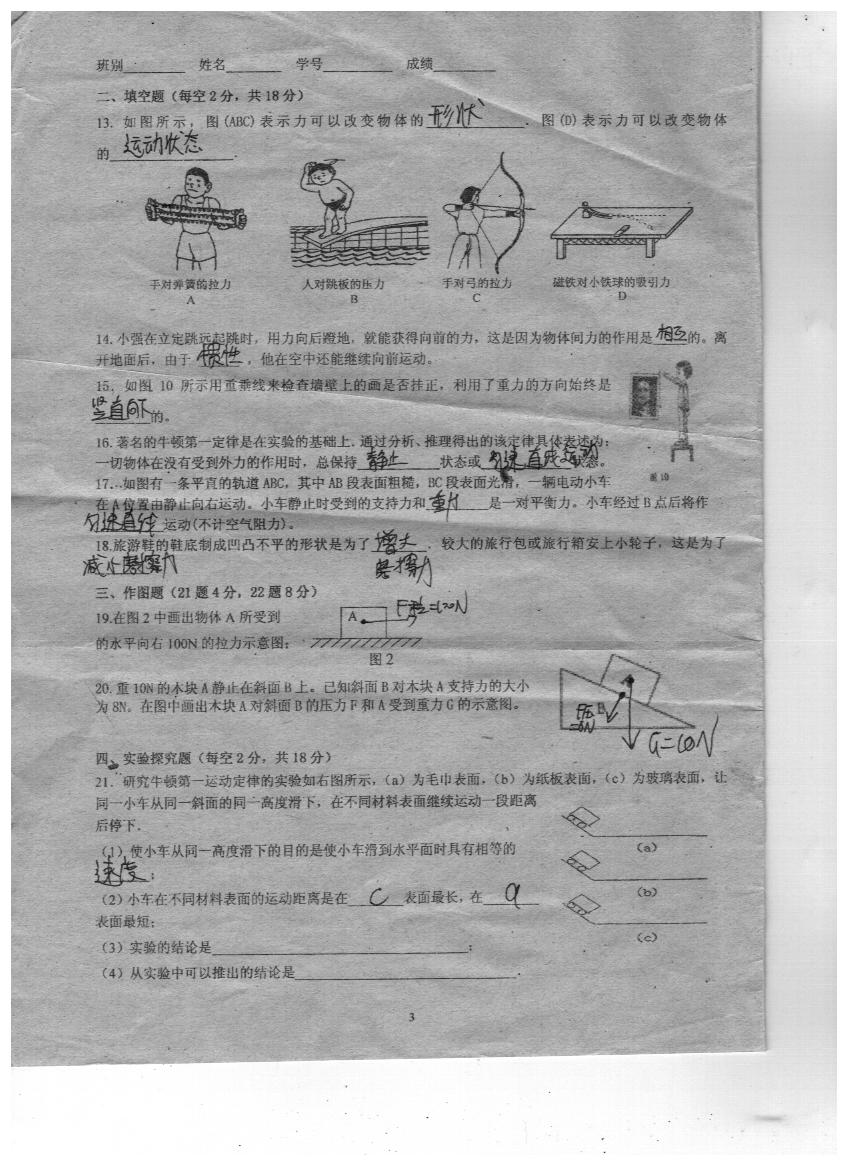 班别________ 姓名________ 学号__________ 成绩_________
二、填空题（每空2分，共18分）
13. 如图所示，图(ABC)表示力可以改变物体的 形状 . 图(D)表示力可以改变物体
的 运动状态 .
手对弹簧的拉力 人对跳板的压力 手对弓的拉力 磁铁对小铁球的吸引力
A B C D
14. 小强在立定跳远起跳时，用力向后蹬地，就能获得向前的力，这是因为物体间力的作用是 相互 的。离
开地面后，由于 惯性 ，他在空中还能继续向前运动。
15．如图 10 所示用重垂线来检查墙壁上的画是否挂正，利用了重力的方向始终是
竖直向下 的。
16. 著名的牛顿第一定律是在实验的基础上，通过分析、推理得出的该定律具体表述为：
一切物体在没有受到外力的作用时，总保持 静止 状态或 匀速直线运动 状态。
图10
17．如图有一条平直的轨道 ABC，其中 AB 段表面粗糙，BC 段表面光滑，一辆电动小车
在 A 位置由静止向右运动。小车静止时受到的支持力和 重力 是一对平衡力。小车经过 B 点后将作
匀速直线 运动(不计空气阻力)。
18.旅游鞋的鞋底制成凹凸不平的形状是为了 增大 ．较大的旅行包或旅行箱安上小轮子，这是为了
减小摩擦力 摩擦力
三、作图题（21 题 4 分，22 题 8 分）
19.在图 2 中画出物体 A 所受到 A F拉=100N
的水平向右 100N 的拉力示意图：
图 2
20. 重 10N 的木块 A 静止在斜面 B 上。已知斜面 B 对木块 A 支持力的大小
为 8N。在图中画出木块 A 对斜面 B 的压力 F 和 A 受到重力 G 的示意图。
A B
F压
G=10N
四、实验探究题（每空 2 分，共 18 分）
21．研究牛顿第一运动定律的实验如右图所示，（a）为毛巾表面，（b）为纸板表面，（c）为玻璃表面，让
同一小车从同一斜面的同一高度滑下，在不同材料表面继续运动一段距离
后停下.
（1）使小车从同一高度滑下的目的是使小车滑到水平面时具有相等的
速度 ；
（a）
（b）
（2）小车在不同材料表面的运动距离是在 c 表面最长，在 a
表面最短；
（c）
（3）实验的结论是____________________________________；
（4）从实验中可以推出的结论是______________________________.
3